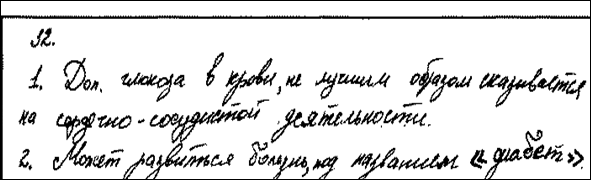 32.
1. Доп. глюкоза в крови, не лучшим образом сказывается
на сердечно-сосудистой деятельности.
2. Может развиться болезнь, под названием «диабет».